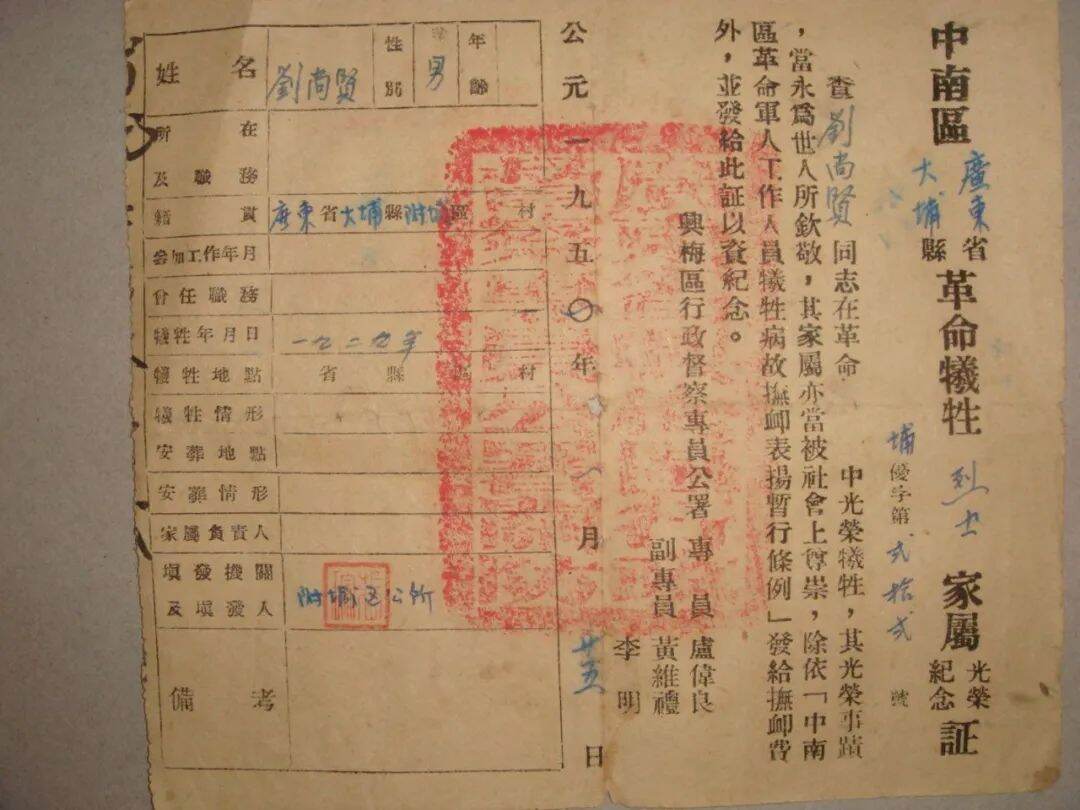 中南區 廣東省 大埔縣 革命犧牲 烈士 家屬 光榮紀念 証
埔優字第弍拾弍號
查劉尚賢同志在革命 中光榮犧牲，其光榮事蹟
，當永爲世人所欽敬，其家屬亦當被社會上尊崇，除依「中南
區革命軍人工作人員犧牲病故撫卹表揚暫行條例」發給撫卹費
外，並發給此証以資紀念。
興梅區行政督察專員公署 專員 盧偉良
副專員 黃維禮
李明
公元一九五〇年 月廿五日
姓名 劉尚賢 性別 男 年齡
所在
及職務
籍貫 廣東省大埔縣附城區 村
參加工作年月
曾任職務
犧牲年月日 一九二九年
犧牲地點 省 縣 區 村
犧牲情形
安葬地點
安葬情形
家屬負責人
填發機關
及填發人 附城區公所
備考